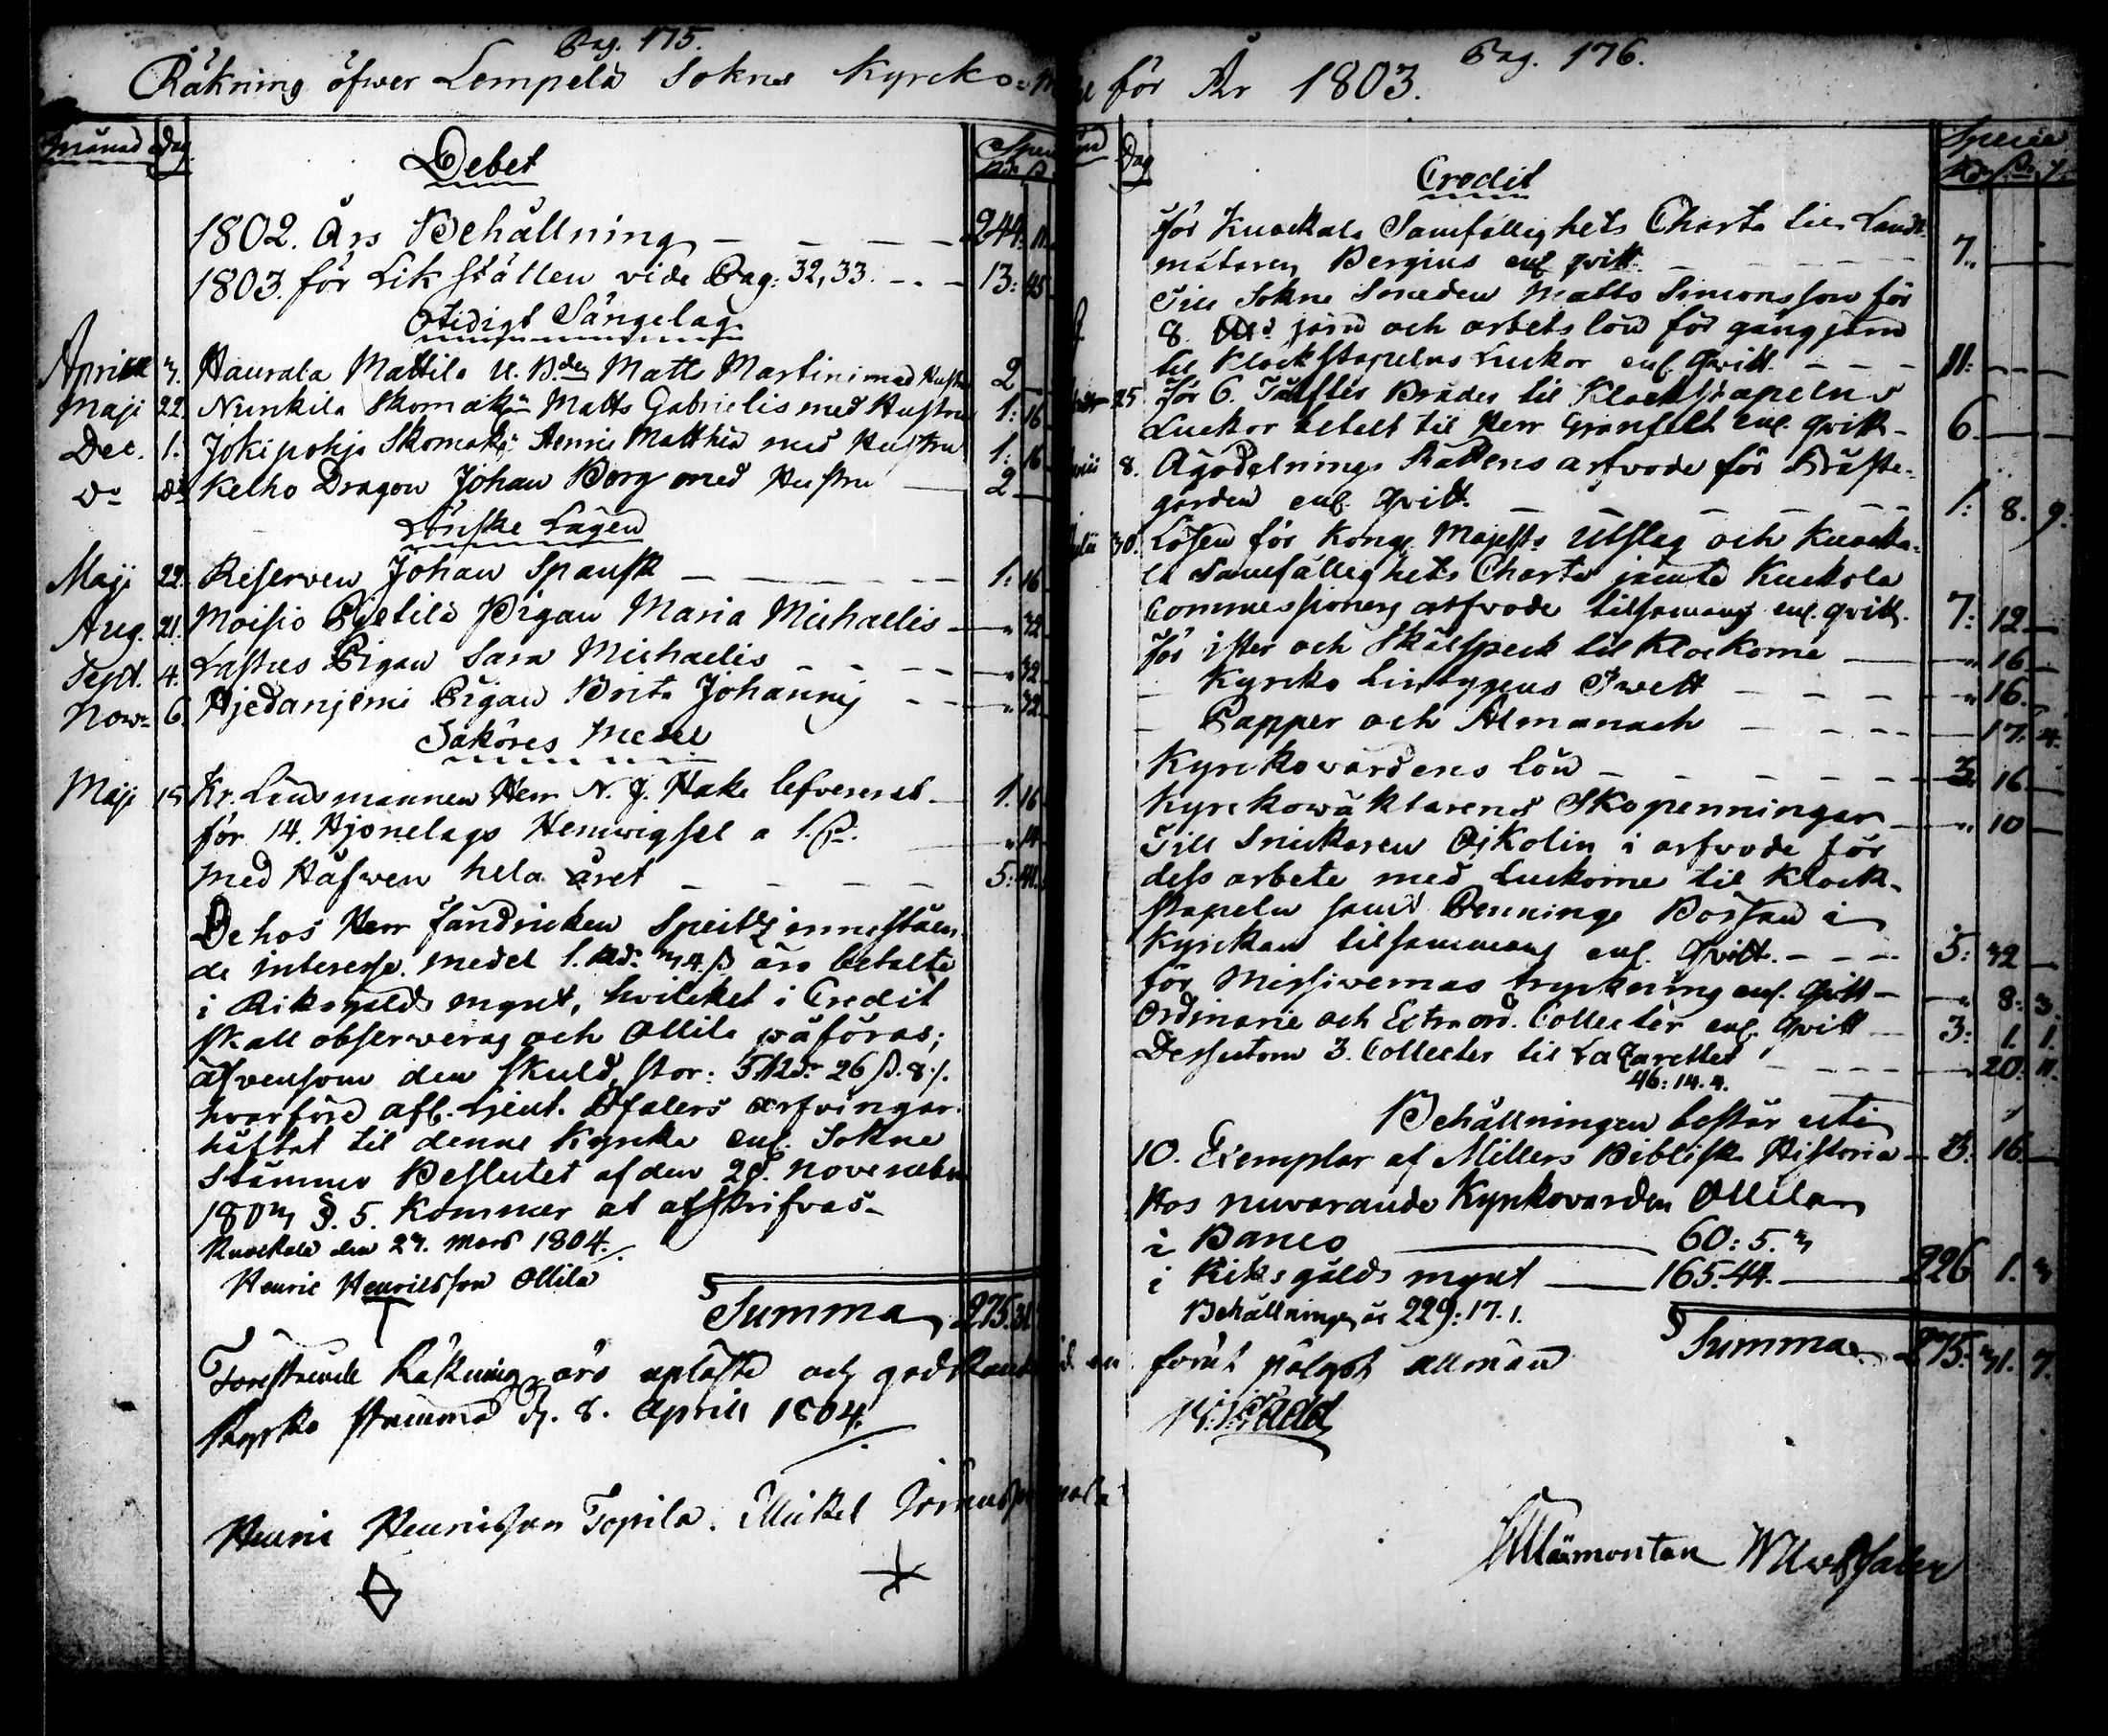 Pag. 175.
Räkning öfwer Lempelä Sokns Kyrcko-
Månad Dag
Debet
1802. Års Behållning 244: 11.
1803. för Lik ställen vide Pag: 32, 33. 13: 45
Otidigt Sängelag
April 3. Haurala Mattila U. B.den Matts Martini med Hustru 2
Maji 22. Nunkila Skomak: Matts Gabrielis med Hustru 1: 16
Dec. 1. Jokipohja Skomak: Henric Matthiæ med Hustru 1: 16
Do do Kelho Dragon Johan Borg med Hustru 2
Lönske Lägen
Maji 22. Reserven Johan Spansk 1: 16
Aug. 21. Moisio Pigan Maria Michaelis " 32
Sept. 4. Lastus Pigan Sara Michaelis " 32
Nov. 6. Hjedanjemi Pigan Brita Johannis " 32
Saköres Medel
Maji 15 Kr. Länsmannen Herr N. J. Hake lefvererat 1. 16
för 14. Hjonelags Hemwigsel a 1. ß. " 14
med Håfwen hela året 5: 41.
De hos Herr Fändricken Speitz inneståen-
de interesse medel 1. Rd: 34. ß äro betalte
i Riksgälds mynt, hvilcket i Credit
skall observeras och Ollila påföras;
äfvensom den skuld, stor: 5 Rdr 26 ß. 8.
hvarföre afl. Lieut. arfvingar
häftat til denne Kyrcka enl. Sokne
Stämmo Beslutet af den November
1803 §. 5. Kommer at afskrifvas.
Kuockala den 27. Mars 1804.
Henric Henricsson Ollila
Summa 275. 31
Förestående Räkning äro upläste och godkände
Kyrko Stämma d. 8. April 1804.
Henric Henricsson Topila. Mickel
Pag. 176.
för År 1803.
Dag
Specie
Credit
för Kuockala Samfällighets Charta til Landt-
mätaren Bergius enl. qvitt. 7.
Till Sokne Smeden Matts Simonsson för
8. järn och arbetslön för gångjärn
til Klockstapelns Luckor enl. Qvitt. 11:
25 för 6. Tålfter Bräder til Klockstapelns
Luckor betalt til Herr Granfelt enl. Qvitt 6.
8. Ägodelnings Rättens arfvode för Präste-
gården enl. Qvitt. 1: 8. 9.
30. Lösen för Kongl. Majestts Utslag och Kuocka-
la Samfällighets Charta jämte Kuckola
Commissionens arfvode tilsammans enl. qvitt. 7: 12
för ister och Skälspeck til Klockorne " 16
Kyrcko Lintygens Twett " 16.
Papper och Almanach 17. 4.
Kyrckovärdens lön 3. 16
Kyrckowäktarens Skopenningar " 10
Till Snickaren Ojkolin i arfvode för
dess arbete med Luckorne til Klock-
stapeln samt Penninge Bössan i
Kyrckan tilsammans enl. Qvitt. 5: 32
för Missivernas tryckning enl. Qvitt " 8: 3.
Ordinarie och Extraord. Collecter enl. Qvitt 3: 1. 1.
Dessutom 3. Collecter til Lazarettet " 20: 11.
46: 14. 4.
Behållningen består uti
10. Exemplar af Millers Biblisk Historia 3: 16.
Hos nuvarande Kyrkovärden Ollila
i Banco 60: 5. 3
i Riksgälds mynt 165: 44. 226 1. 3
Behållningen är 229: 17. 1.
Summa 275. 31. 7.
förut pålyst allmän